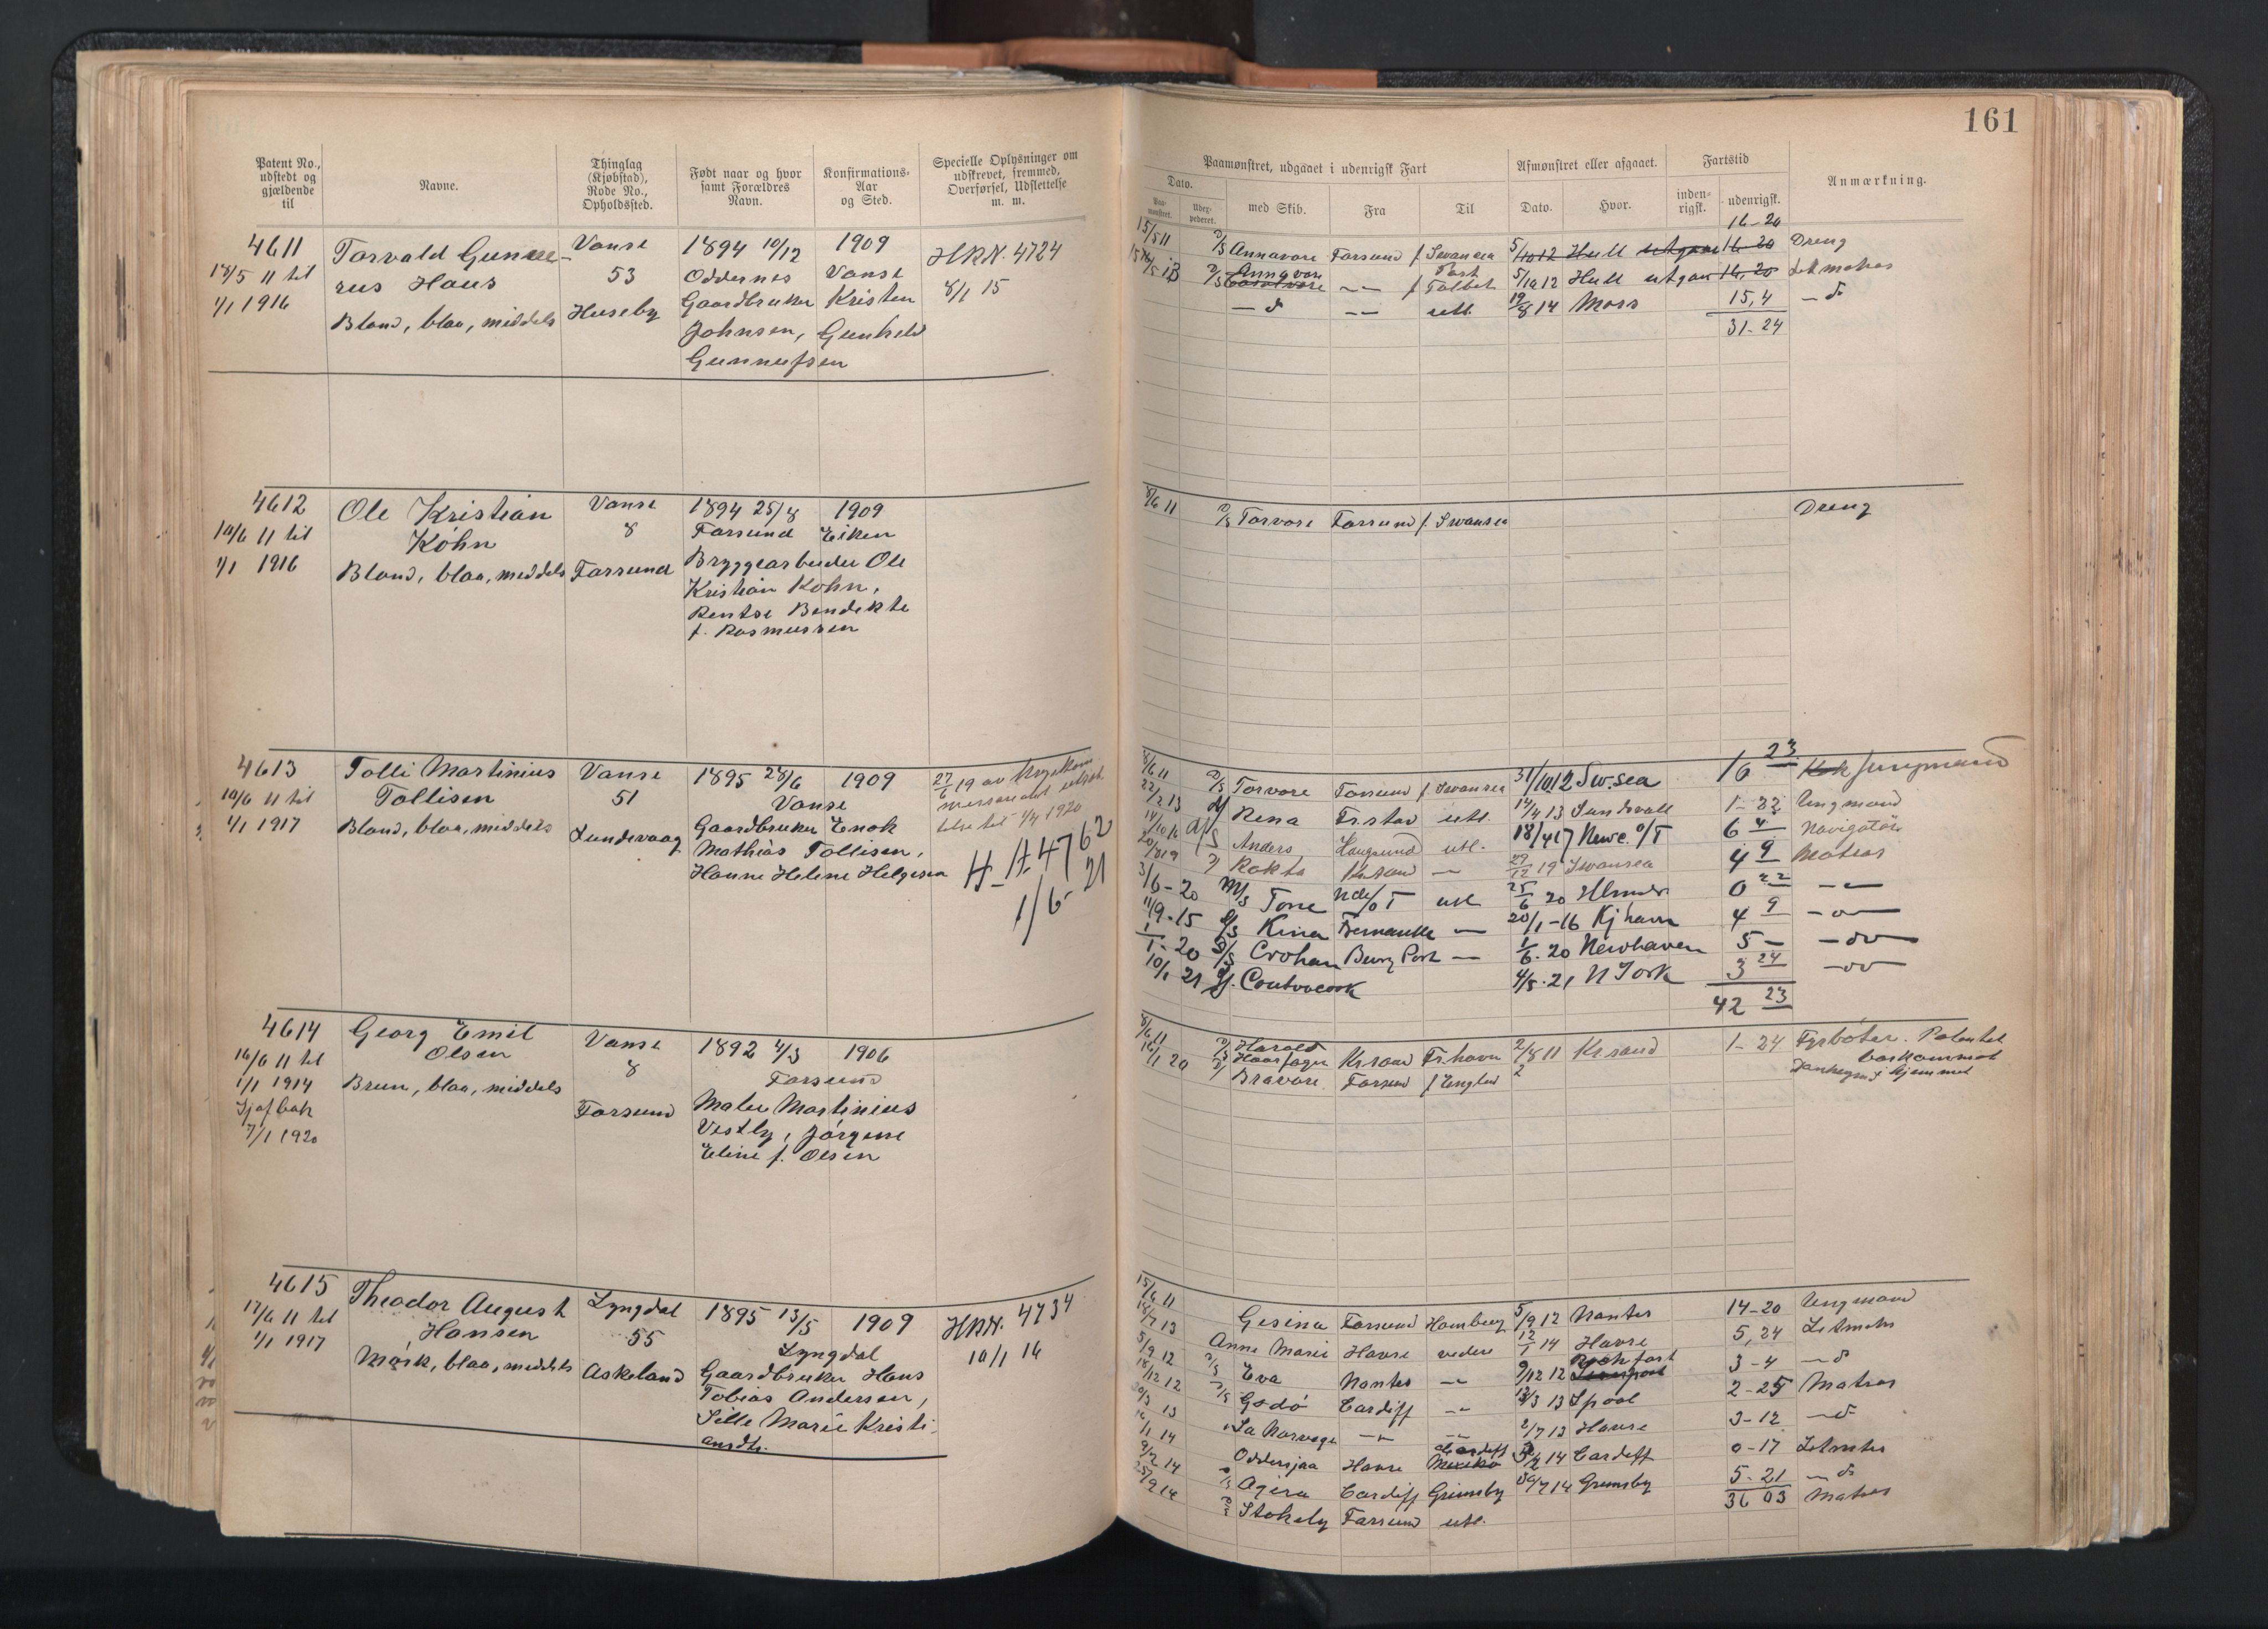 161
Patent No., udstedt og gjældende til
Navne.
Thinglag (Kjøbstad), Rode No., Opholdssted.
Født naar og hvor samt Forældres Navn.
Konfirmations-Aar og Sted.
Specielle Oplysninger om udskrevet, fremmed, Overførsel, Udslettelse m. m.
Paamønstret, udgaaet i udenrigsk Fart
Afmønstret eller afgaaet.
Fartstid
Anmærkning.
Dato.
med Skib.
Fra
Til
Dato.
Hvor.
inden-rigsk.
udenrigsk.
4611
18/5 11 til
1/1 1916
Torvald Gunne-
rus Haus
Blond, blaa, middels
Vanse
53
Huseby
1894 10/12 1909
Oddernes Vanse
Gaardbruker Kristen
Johnsen, Gunhild
Gunnufsen
HRN. 4724
8/1 15
16-20
15/5 11 D/S Annavore Farsund f Swansea 5/10 12 Hull utgaar 16-20 Dreng
D/S Annavore f Port Talbot 5/10 12 Hull utgaar 16.20 Letmatros
— d — utl. 19/8 14 Moss 15,4 — d
31-24
4612
10/6 11 til
1/1 1916
Ole Kristian
Kohn
Blond, blaa, middels
Vanse
8
Farsund
1894 25/8 1909
Farsund Eiken
Bryggearbeider Ole
Kristian Kohn,
Bentse Bendikte
f. Rasmussen
8/6 11 D/S Torvore Farsund f Swansea Dreng
4613
10/6 11 til
1/1 1917
Tolli Martinius
Tollisen
Blond, blaa, middels
Vanse
51
Lundevaag
1895 28/6 1909
Vanse
Gaardbruker Enok
Mathias Tollisen,
Hanne Helene Helgesen
27/6 19 av
1/4 1920
H. A 4762
1/6-21
8/6 11 D/S Torvore Farsund f Swansea 31/10 12 Sw.sea 16 23 Kok Jungmand
22/2 13 Rena Fr.stad utl. 14/4 13 Sundsvall 1-22 Ungmand
14/10 16 Anders Haugesund utl. 18/4 17 Newc. o/T 6 4 Navigatør
Rokta Kr.sand — 29/12 19 Swansea 4 9 Matros
3/6-20 M/S Tone Ndc/oT utl 25/6 20 0 22 — —
11/9-15 Kina Fremantle — 20/1-16 Kjhavn 4 9 — o —
1/1-20 D/S Crohan Burry Port — 1/6-20 Newhaven 5 — — do —
10/1 21 Contoocook 4/5-21 N York 3 24 — do —
42 23
4614
16/6 11 til
1/1 1914
Sjøfbok
7/1 1920
Georg Emil
Olsen
Brun, blaa, middels
Vanse
8
Farsund
1892 4/3 1906
Farsund
Maler Martinius
Vestly, Jørgene
Eline f. Olsen
8/6 11 D/S Harald Haarfager Kr.sand Fr.havn 2/8 11 Kr.sand 1-24 Fyrbøter. Patentet bortkommet
1/1 20 Bravore Farsund f Englnd
4615
17/6 11 til
1/1 1917
Theodor August
Hansen
Mørk, blaa, middels
Lyngdal
55
Askeland
1895 13/5 1909
Lyngdal
Gaardbruker Hans
Tobias Andersen,
Sille Marie Kristi-
ansdtr.
HRN. 4734
10/1 16
15/6 11 Gesina Farsund Hamburg 5/9 12 Nantes 14-20 Ungmand
14/7 13 Anne Marie Havre videre 12/1 14 Havre 5,24 Letmatros
5/9 12 D/S Eva Nantes — 9/12 12 Rochfort 3-4 — d
18/12 12 D/S Godø Cardiff — 13/3 13 Lpool 2-25 Matros
20/3 13 La Norvege — — 2/7 13 Havre 3-12 — d
1/1 14 Oddersjaa Havre Cardiff Mexiko 14 Cardiff 0-17 Letmatros
9/2 14 D/S Agira Cardiff Grimsby 30/7 14 Grimsby 5-21 — d
25/9 14 Stokely Farsund utl. 36 03 Matros